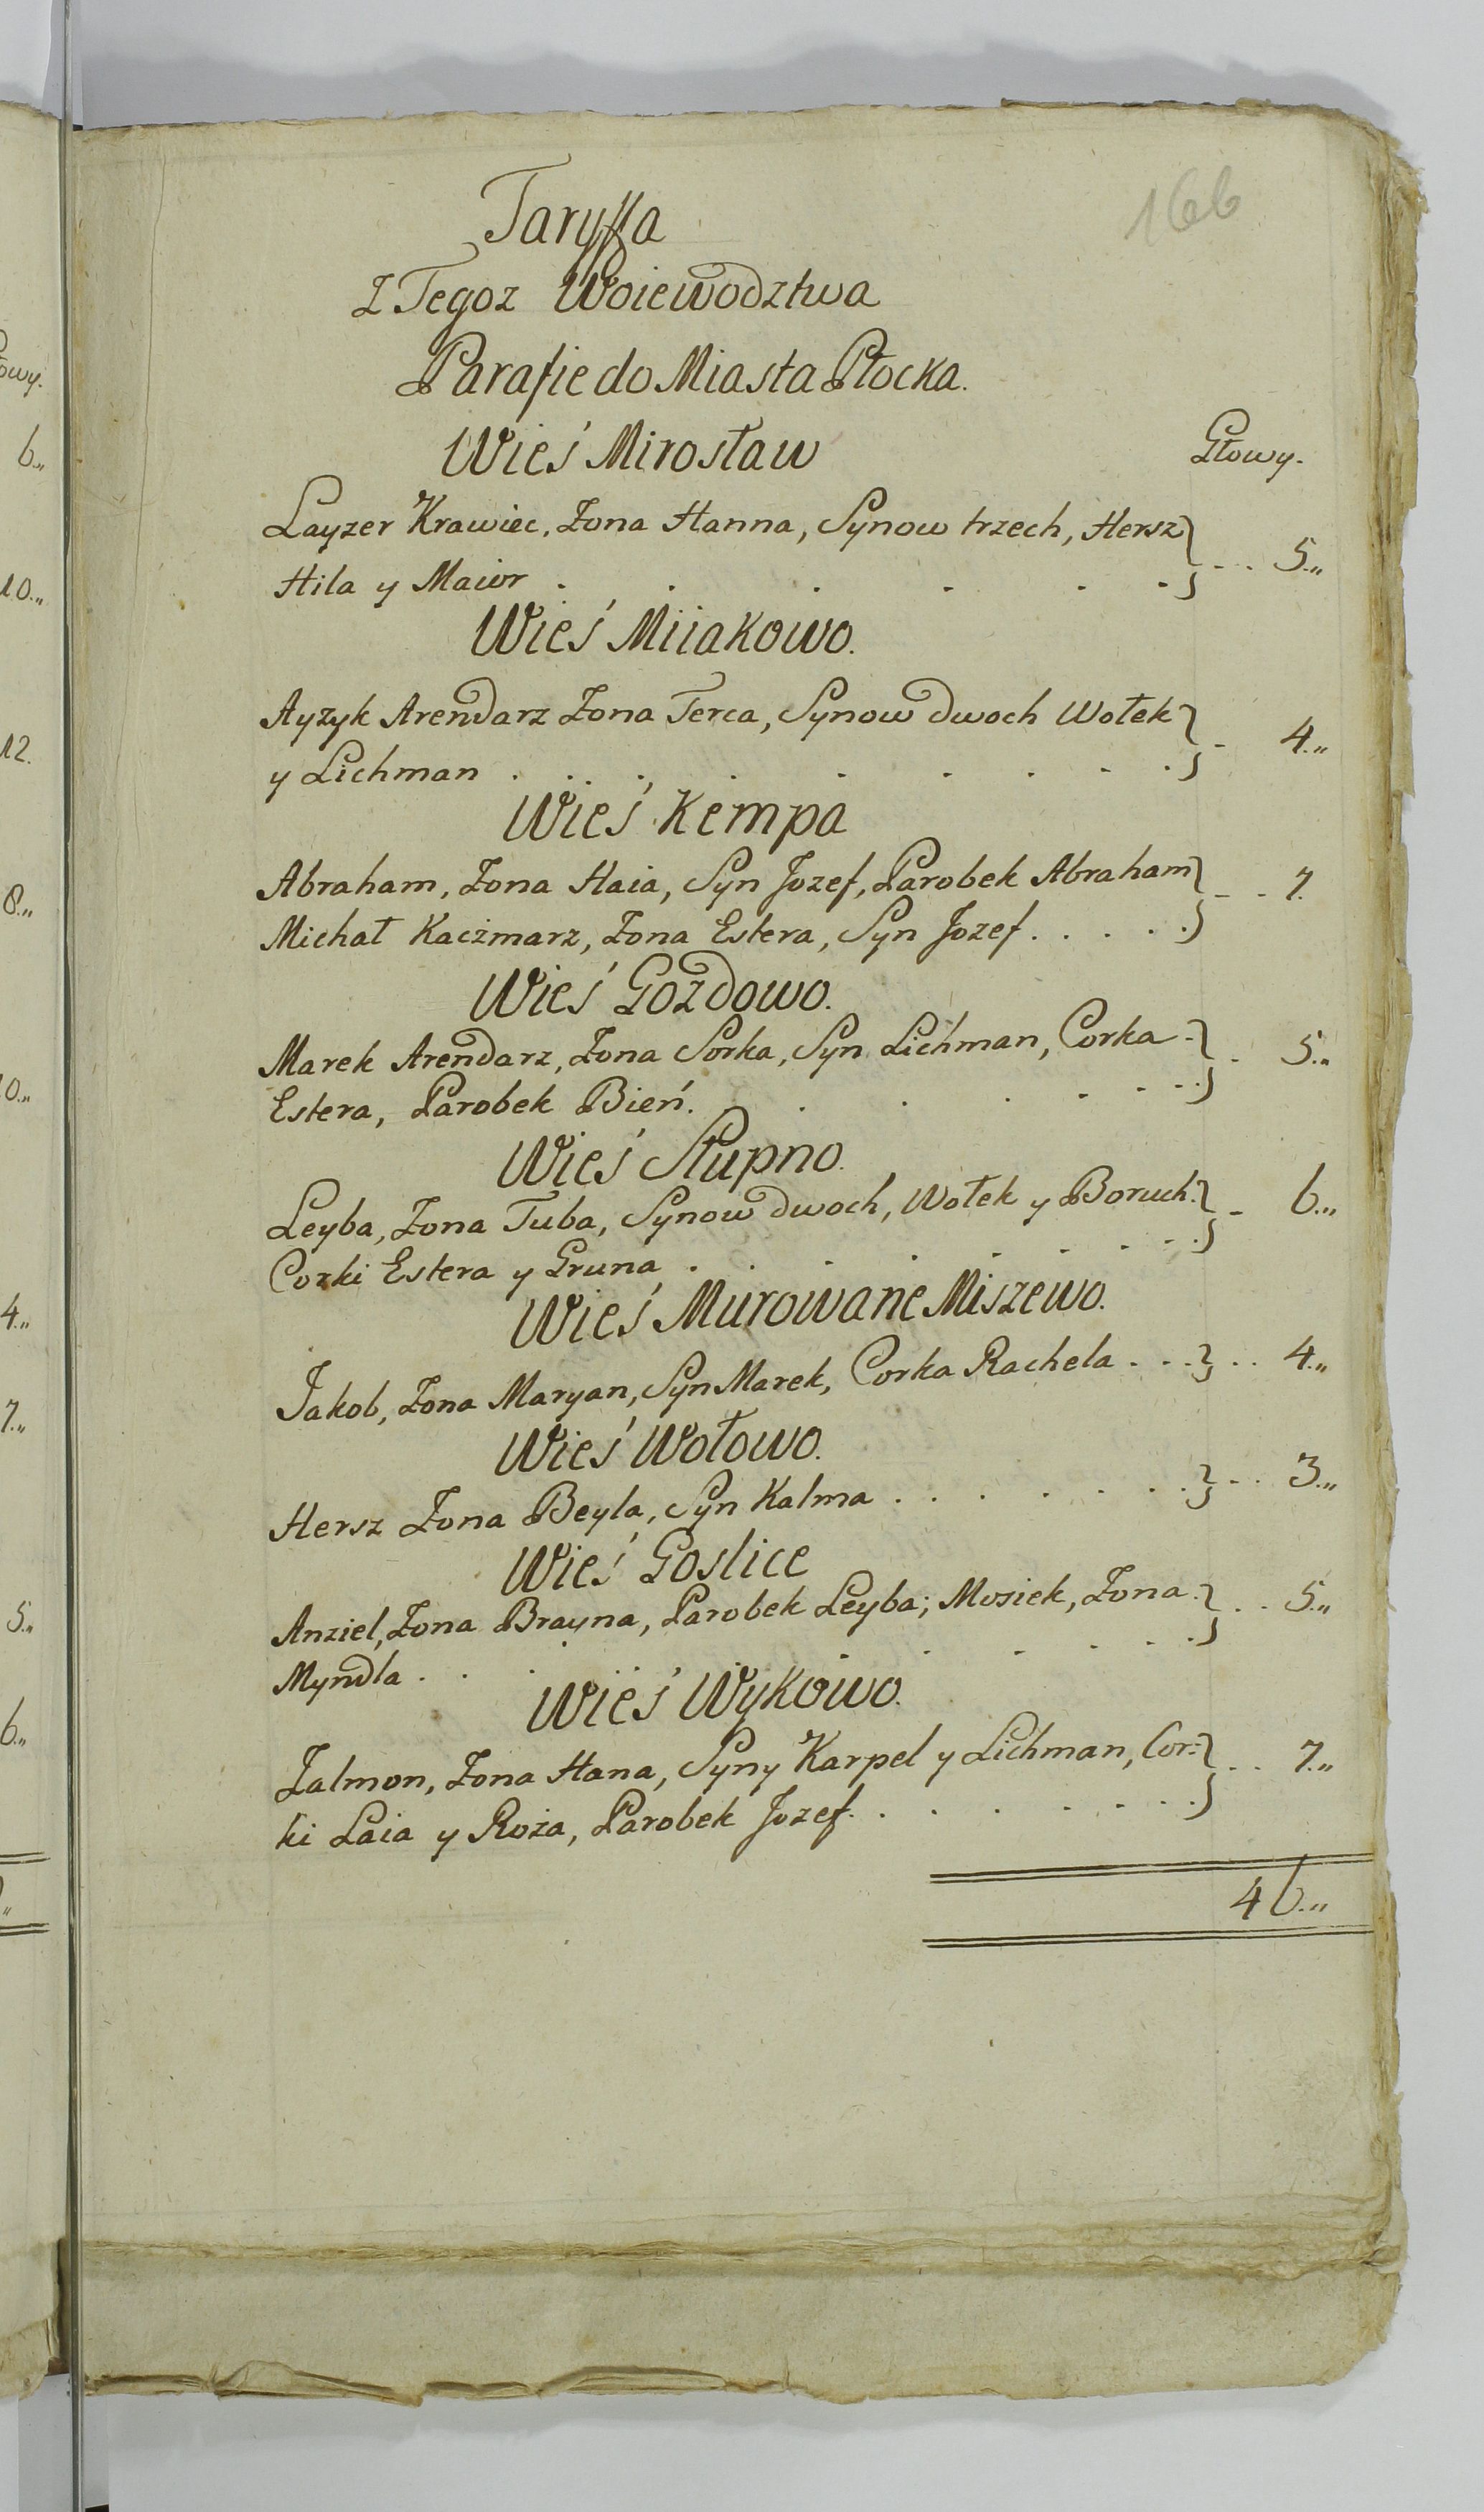 166
Taryffa
Z Tegoz Woiewodztwa
Parafie do Miasta Płocka.
Wieś Mirosław
Głowy.
Layzer Krawiec, Zona Hanna, Synow trzech, Hersz
Hila y Maior . . . . . . } . . . 5.,,
Wieś Miiakowo.
Ayzyk Arendarz Zona Terca, Synow dwoch Wołek
y Lichman . . . . . . . . . } - 4.,,
Wieś Kempa
Abraham, Zona Haia, Syn Jozef, Parobek Abraham
Michał Kaczmarz, Zona Estera, Syn Jozef . . . . . } - - 7.
Wieś Gozdowo.
Marek Arendarz, Zona Sorka, Syn Lichman, Corka -
Estera, Parobek Bień. . . . . . . } - 5.,,
Wieś Słupno.
Leyba, Zona Tuba, Synow dwoch, Wołek y Boruch.
Corki Estera y Gruna . . . . . . . . } - 6.,,
Wieś Murowane Miszewo.
Jakob, Zona Maryan, Syn Marek, Corka Rachela . . . } . . 4.,,
Wieś Wołowo.
Hersz Zona Beyla, Syn Kalma . . . . . . . } . . . 3.,,
Wieś Goslice
Anziel, Zona Brayna, Parobek Leyba; Mosiek, Zona
Myndla . . . . . . . . . } . . 5.,,
Wieś Wykowo.
Zalmon, Zona Hana, Syny Karpel y Lichman, Cor:
ki Laia y Roża, Parobek Jozef. . . . . . . . } . . 7.,,
46.,,
owy.
6.,,
10.,,
12.
8.,,
0.,,
4.,,
7.,,
5.,,
6.,,